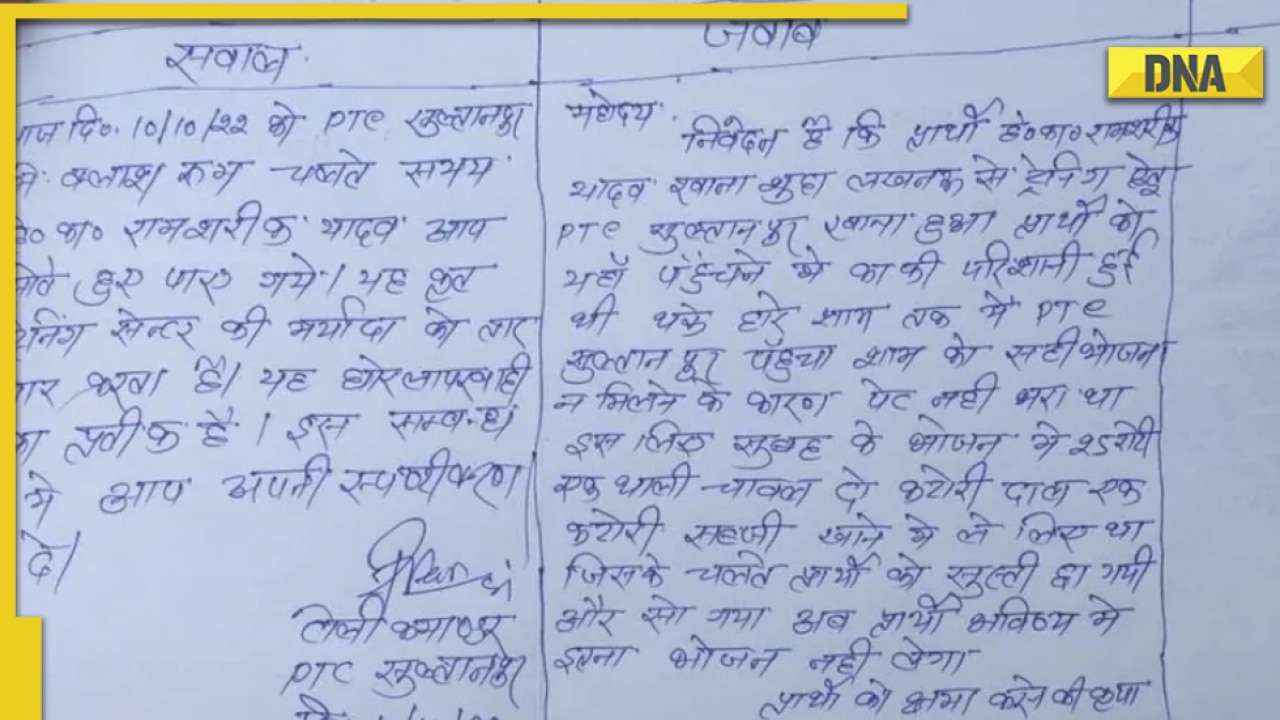 सवाल
आज दि० 10/10/22 को PTC सुल्तानपुर
मे क्लाश रूम चलते समय
हे० का० रामशरीक यादव आप
सोते हुए पाए गये। यह कृत
ट्रेनिंग सेन्टर की मर्यादा को तार
तार करता है। यह घोर लापरवाही
का प्रतीक है। इस सम्बन्ध
मे आप अपनी स्पष्टीकरण
दे।
टोली कमाण्डर
PTC सुल्तानपुर
जबाब
महोदय
निवेदन है कि प्रार्थी हे०का० रामशरीक
यादव रवाना शुदा लखनऊ से ट्रेनिंग हेतू
PTC सुल्तानपुर रवाना हुआ प्रार्थी को
यहाँ पहुंचने मे काफी परिशानी हुई
थी थके हारे शाम तक मे PTC
सुल्तानपुर पहुँचा शाम को सही भोजन
न मिलने के कारण पेट नही भरा था
इस लिए सुबह के भोजन मे 25 रोटी
एक थाली चावल दो कटोरी दाल एक
कटोरी सब्जी खाने मे ले लिए था
जिसके चलते प्रार्थी को सुस्ती छा गयी
और सो गया अब प्रार्थी भविष्य मे
इतना भोजन नही लेगा
प्रार्थी को क्षमा करने की कृपा
DNA